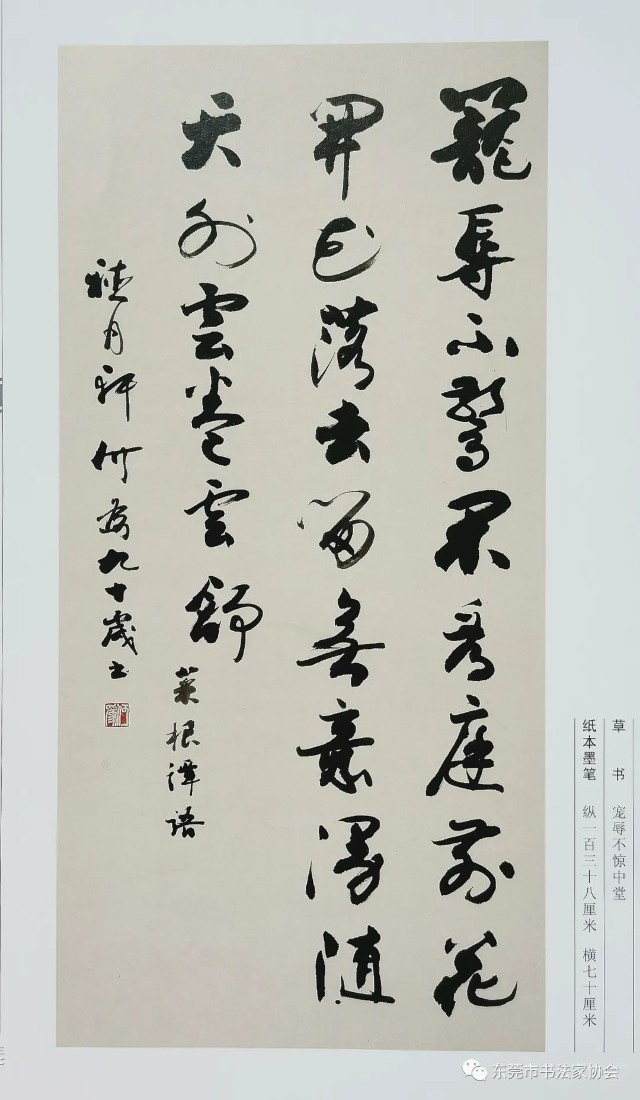 寵辱不驚閑看庭前花
開花落去留無意漫随
天外雲卷雲舒
菜根譚語
月軒九十歲书
草书 宠辱不惊中堂
纸本墨笔 纵一百三十八厘米 横七十厘米
东莞市书法家协会